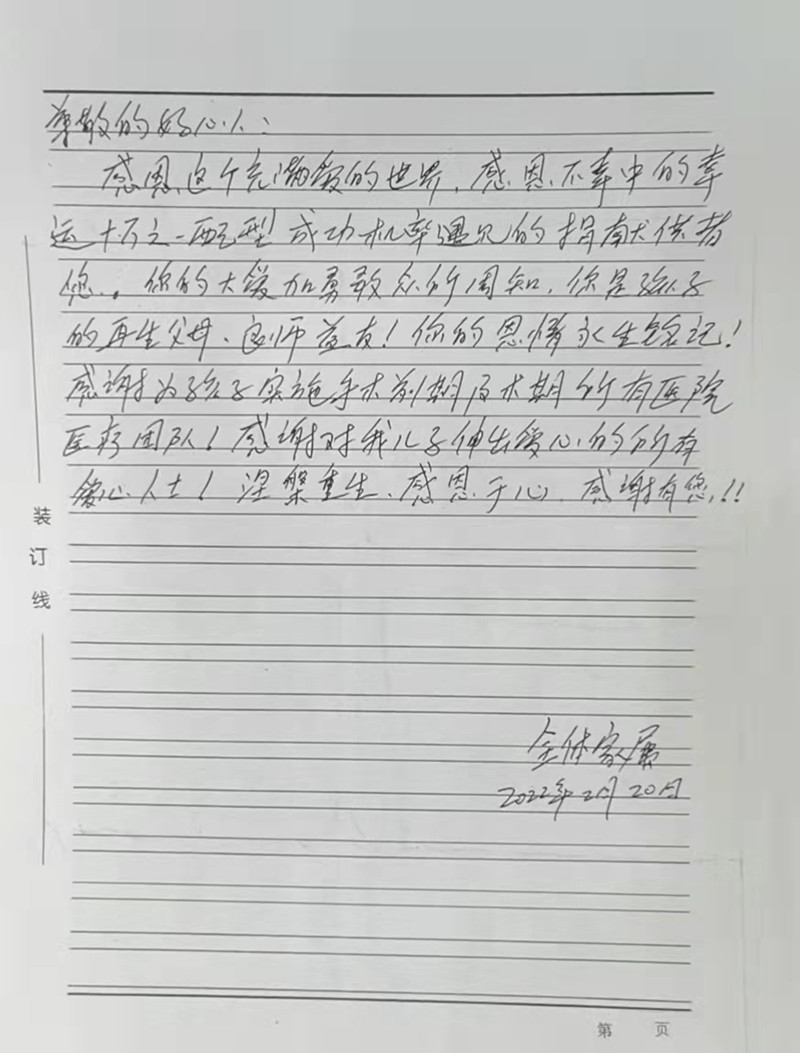 尊敬的好心人：
感恩这个充满爱的世界，感恩不幸中的幸
运十万之一配型成功机率遇见的捐献供者
您。你的大爱加勇敢众所周知，你是孩子
的再生父母、良师益友！你的恩情永生铭记！
感谢为孩子实施手术前期后术期所有医院
医疗团队！感谢对我儿子伸出爱心的所有
爱心人士！涅槃重生、感恩于心、感谢有您！！
全体家属
2022年2月20日
装订线
第 页